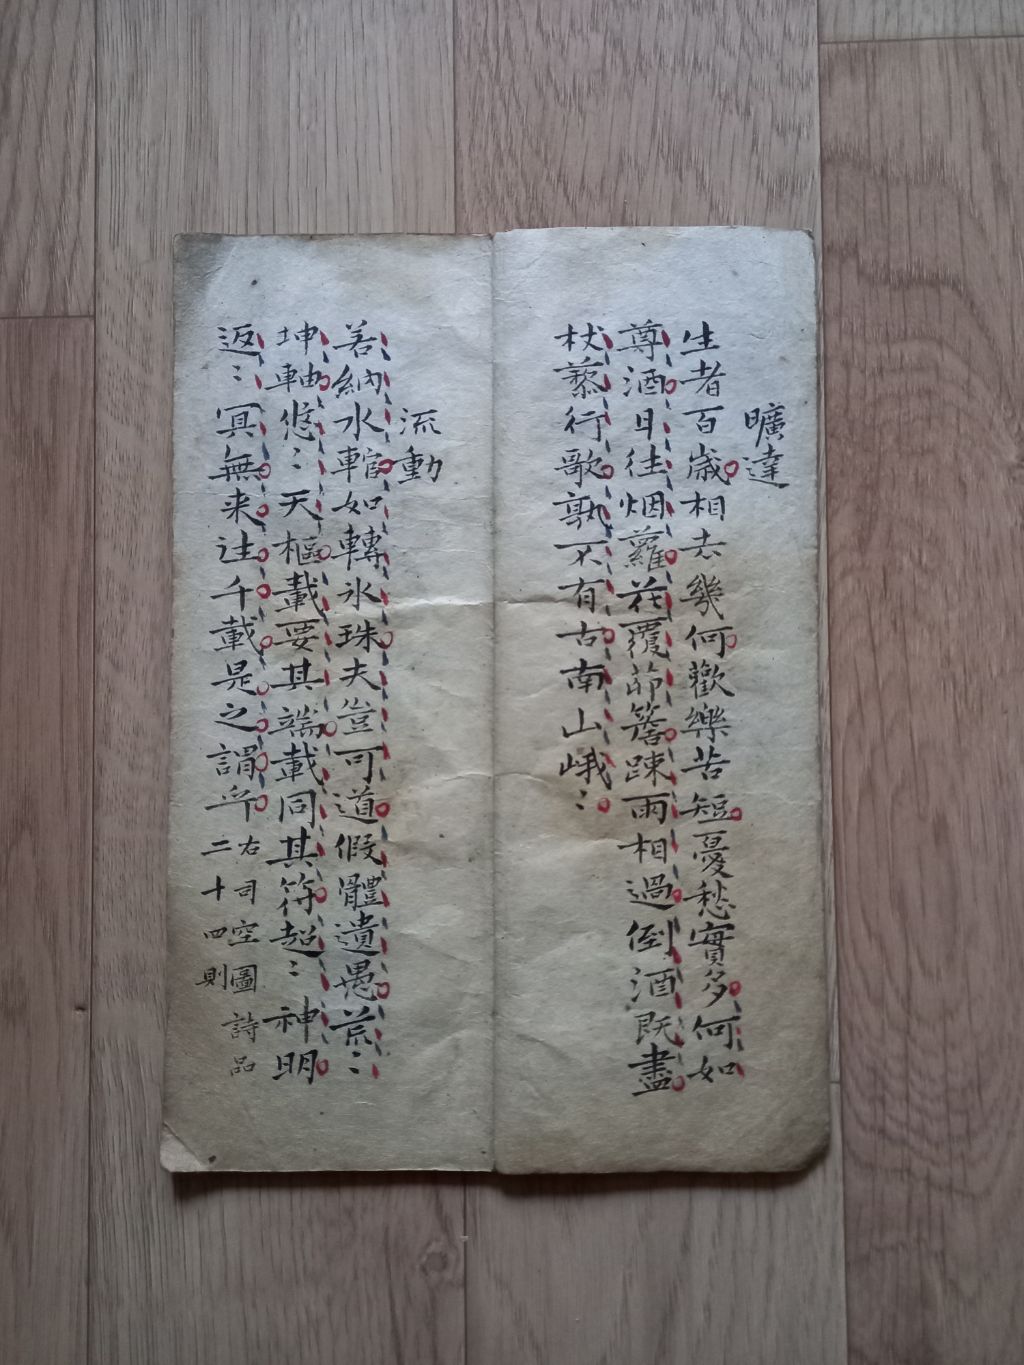 曠達
生者百歲相去幾何歡樂苦短憂愁實多何如
尊酒日往烟蘿花覆茆簷疎雨相過倒酒既盡
杖藜行歌孰不有古南山峨〻
流動
若納水輨如轉氷珠夫豈可道假體遺愚荒〻
坤軸悠〻天樞載要其端載同其符超〻神明
返〻冥無来往千載是之謂乎
右司空圖詩品
二十四則